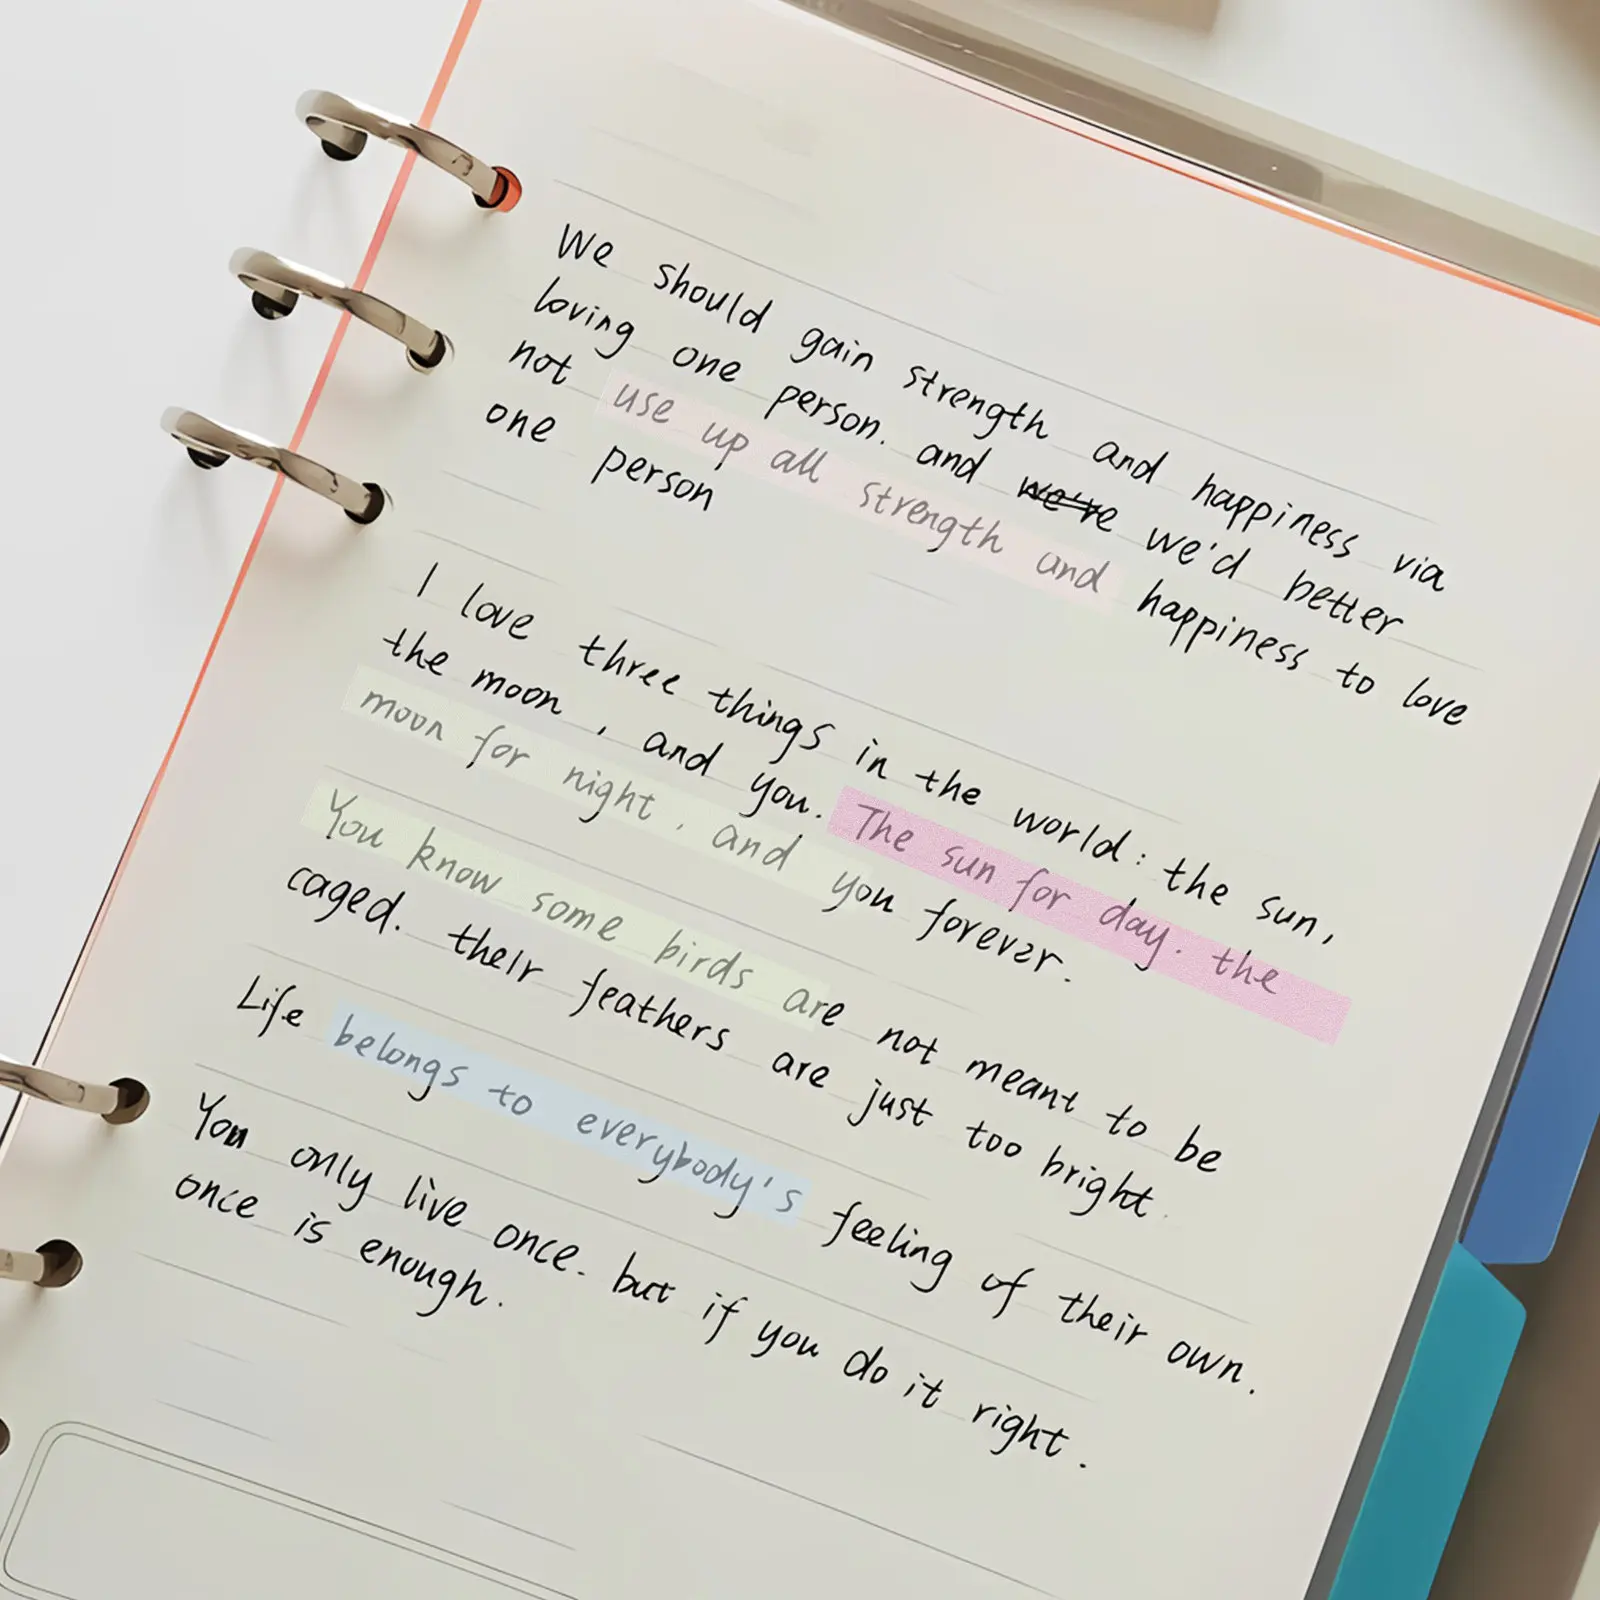 We should gain strength and happiness via
loving one person. and we're we'd better
not use up all strength and happiness to love
one person
I love three things in the world: the sun,
the moon, and you. The sun for day. the
moon for night, and you forever.
You know some birds are not meant to be
caged. their feathers are just too bright.
Life belongs to everybody's feeling of their own.
You only live once. but if you do it right.
once is enough.